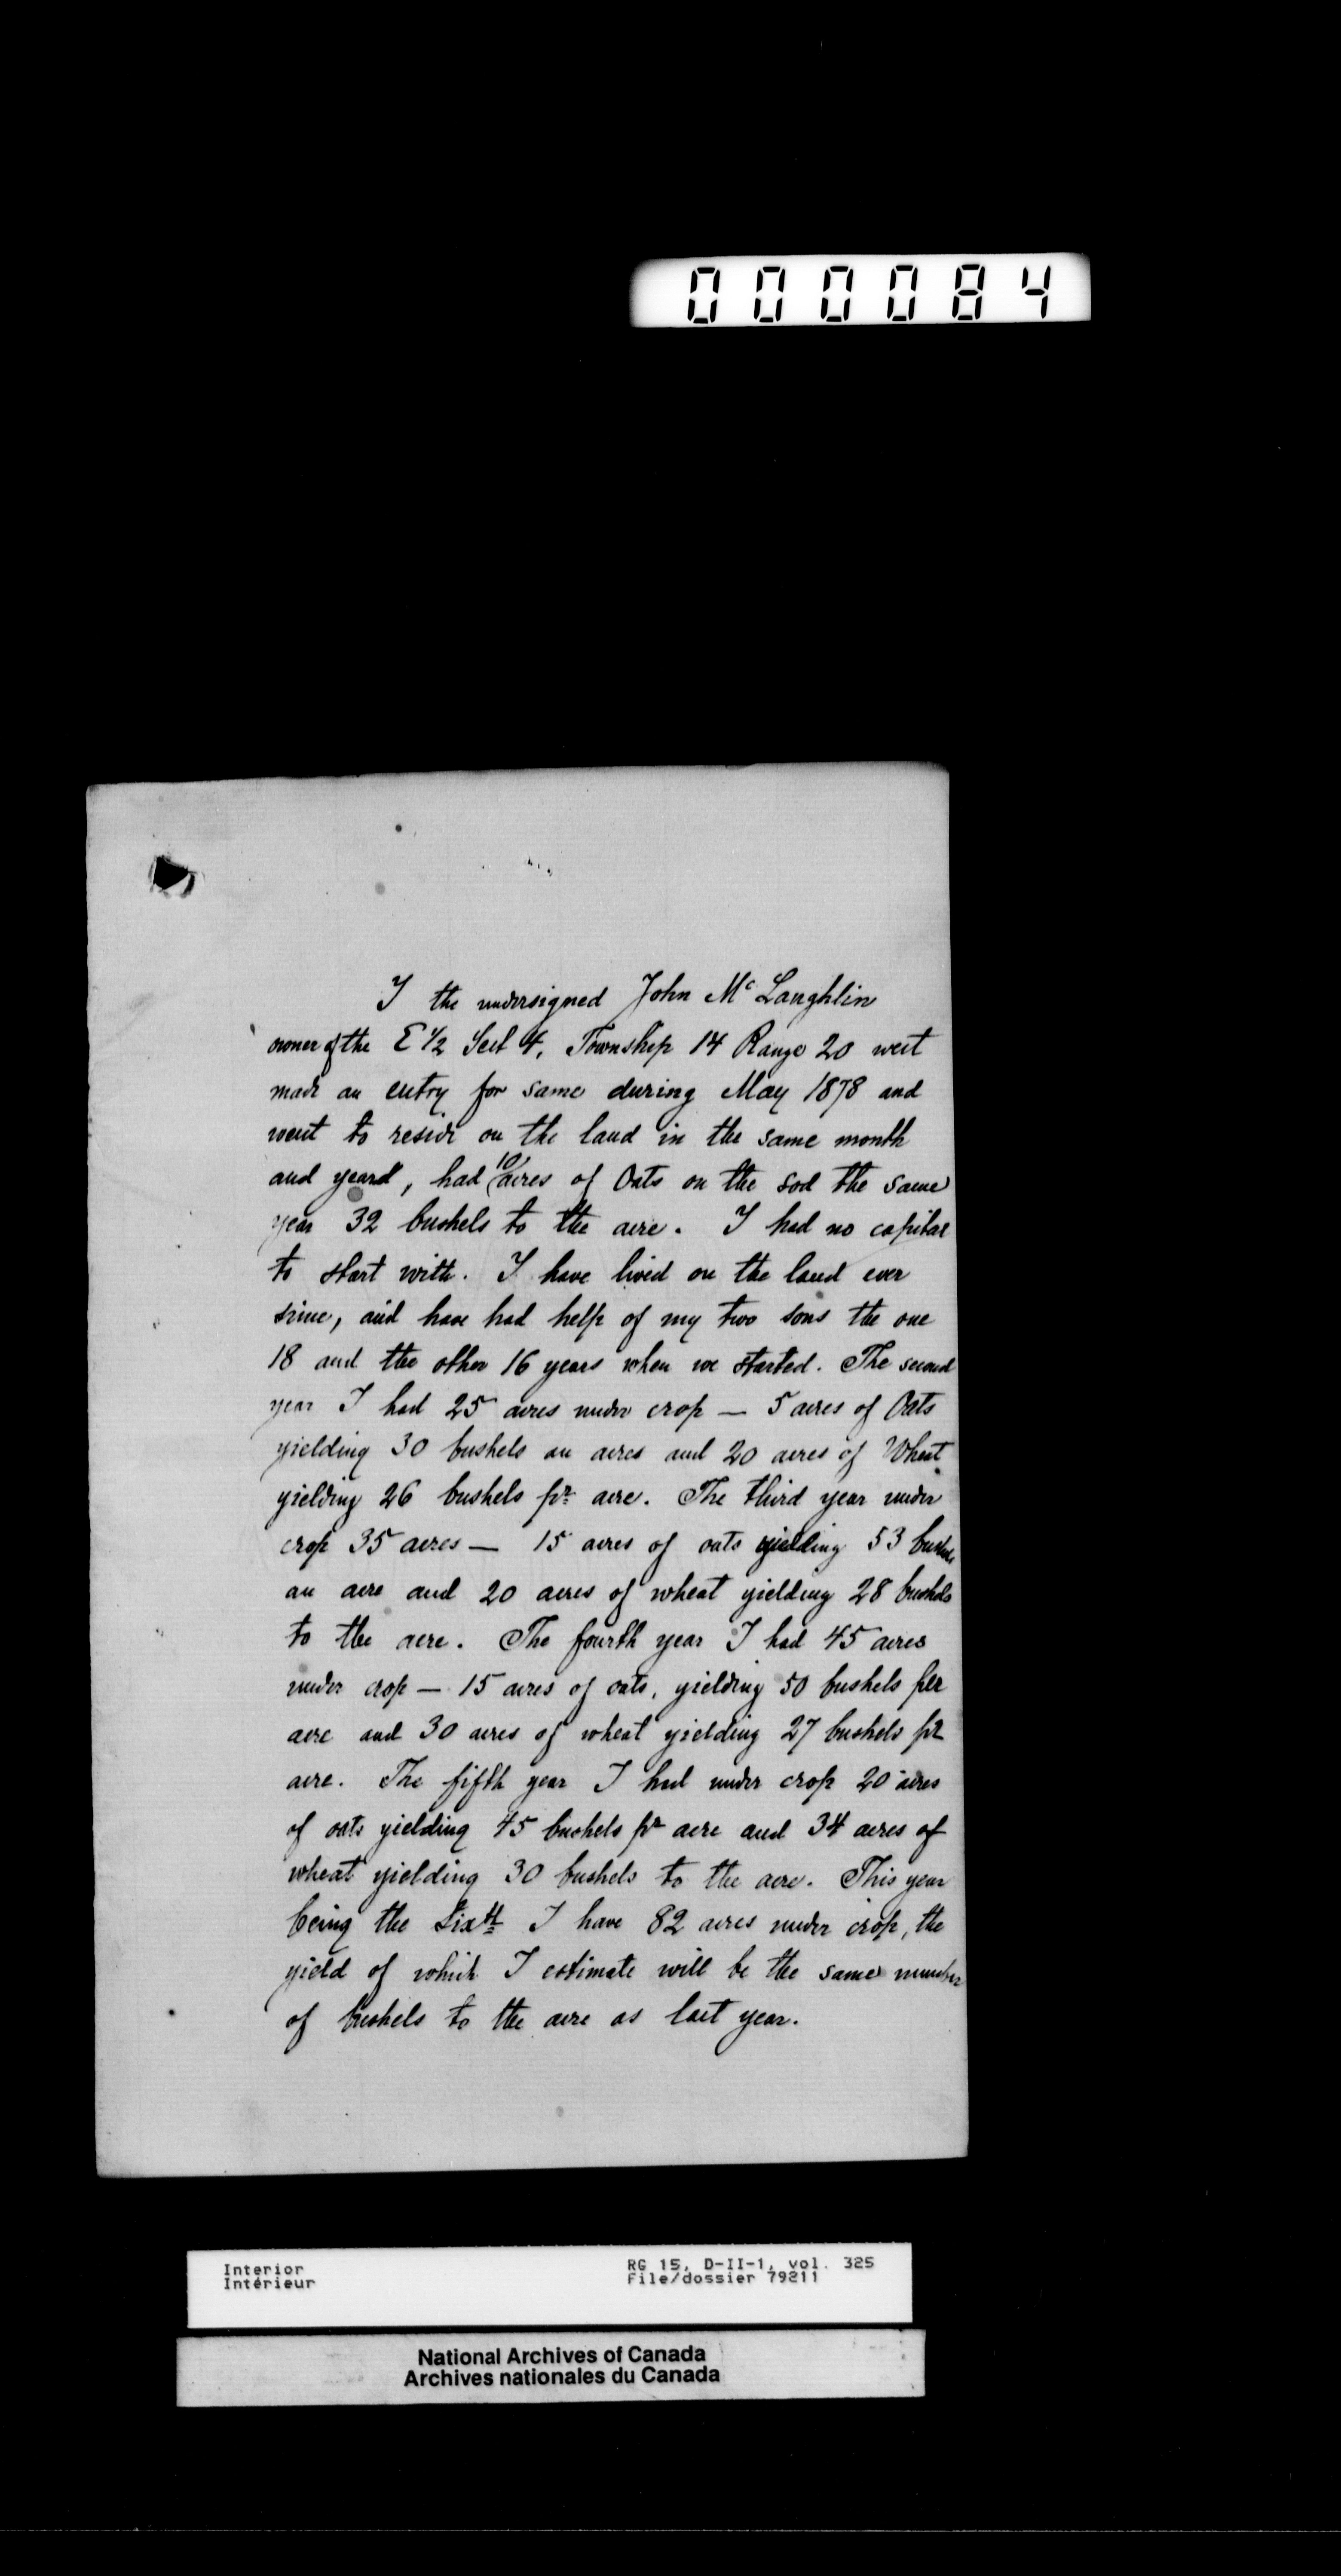 000084
I the undersigned John Mc Laughlin
owner of the E 1/2 Sect 4, Township 14 Range 20 west
made an entry for same during May 1878 and
went to reside on the land in the same month
and year, had 10 acres of Oats on the sod the same
year 32 bushels to the acre. I had no capital
to start with. I have lived on the land ever
since, and have had help of my two sons the one
18 and the other 16 years when we started. The second
year I had 25 acres under crop — 5 acres of Oats
yielding 30 bushels an acres and 20 acres of Wheat
yielding 26 bushels pr acre. The third year under
crop 35 acres — 15 acres of oats yielding 53 bushels
an acre and 20 acres of wheat yielding 28 bushels
to the acre. The fourth year I had 45 acres
under crop — 15 acres of oats, yielding 50 bushels per
acre and 30 acres of wheat yielding 27 bushels pr
acre. The fifth year I had under crop 20 acres
of oats yielding 45 bushels pr acre and 34 acres of
wheat yielding 30 bushels to the acre. This year
being the sixth I have 82 acres under crop, the
yield of which I estimate will be the same number
of bushels to the acre as last year.
Interior RG 15, D-II-1, vol. 325
Intérieur File/dossier 79211
National Archives of Canada
Archives nationales du Canada